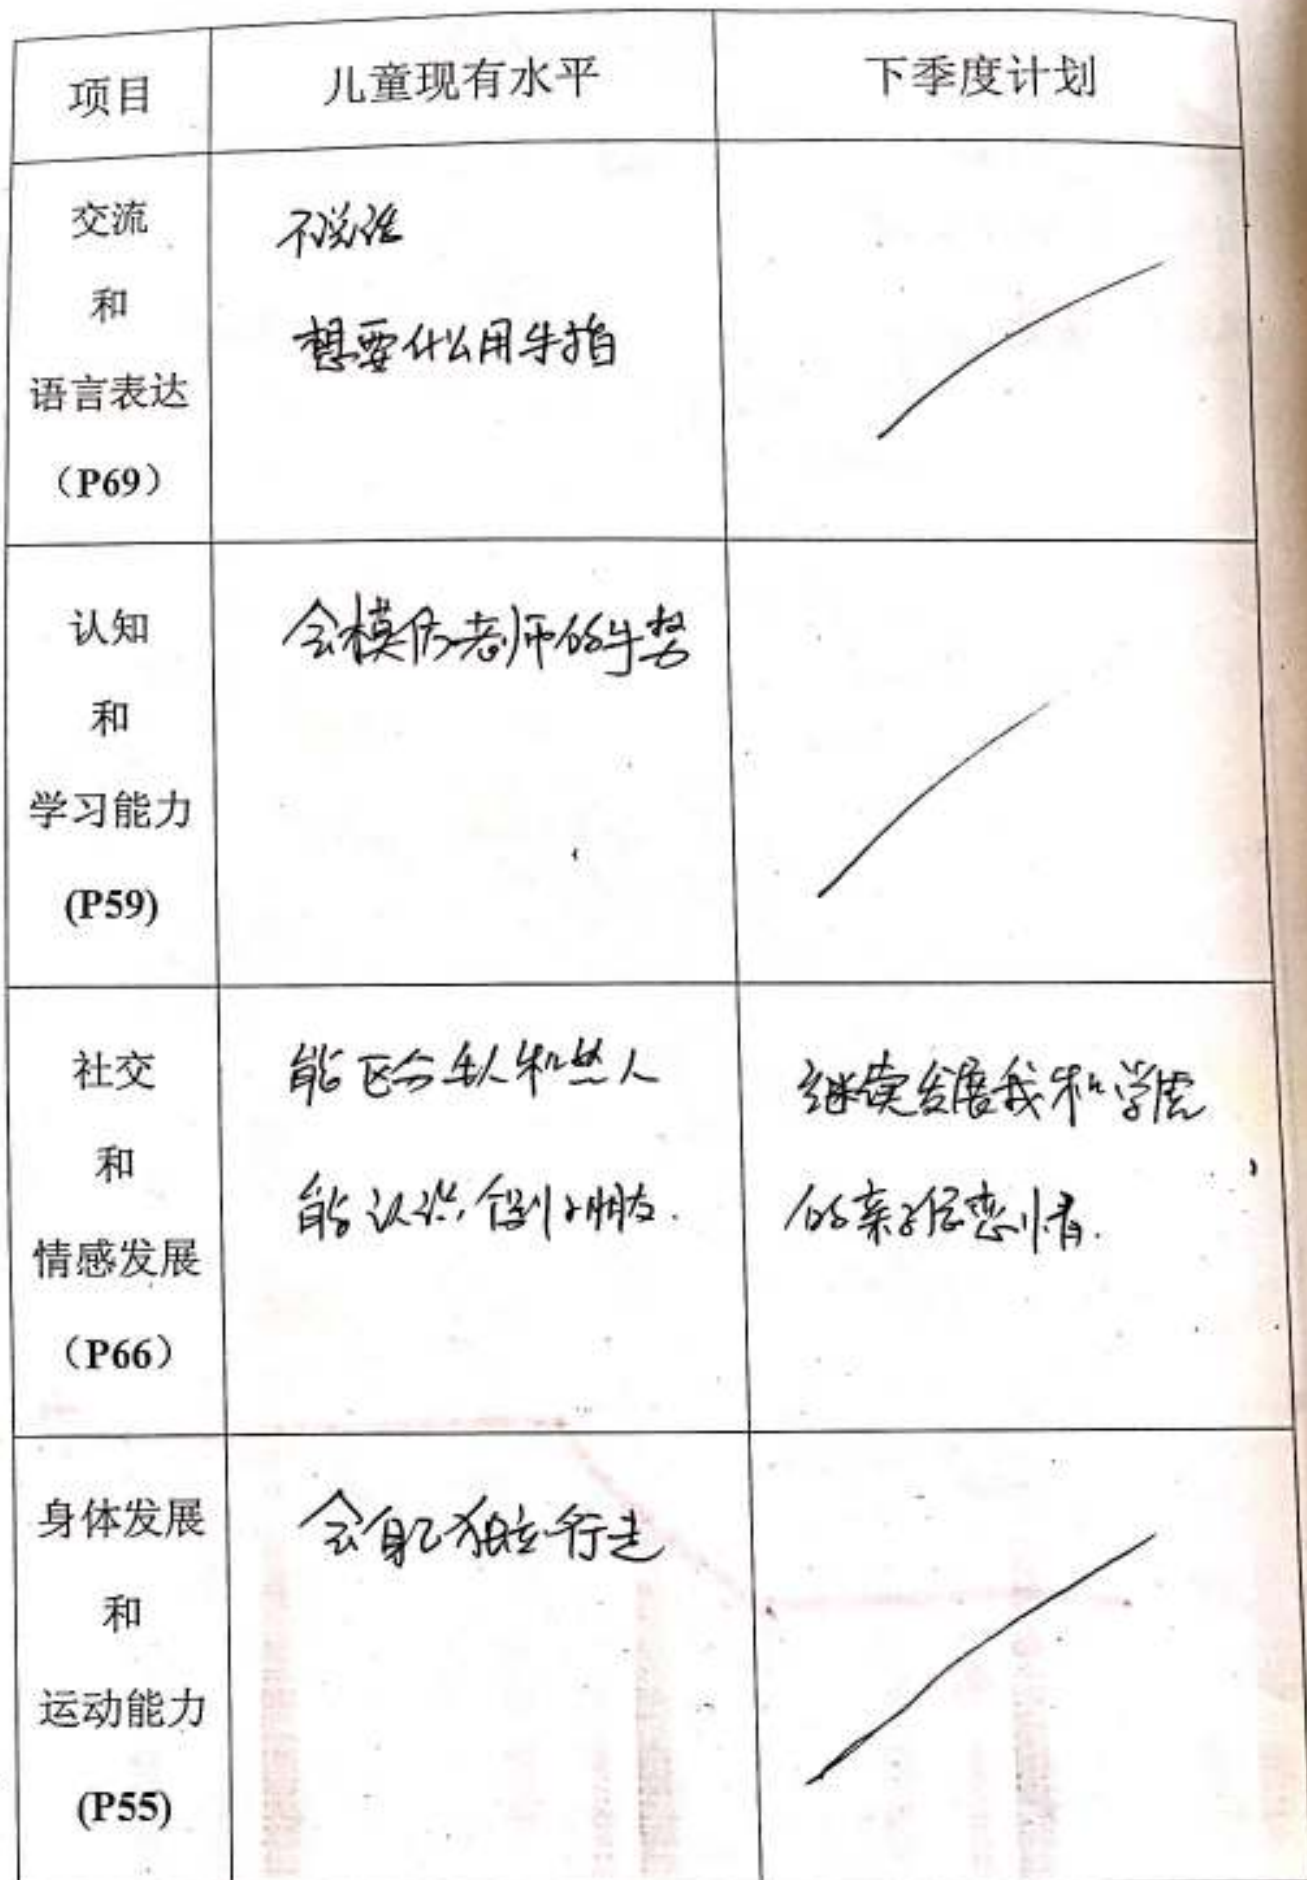 项目 儿童现有水平 下季度计划
交流
和
语言表达
（P69）
不说话
想要什么用手指
认知
和
学习能力
(P59)
会模仿老师的手势
社交
和
情感发展
（P66）
能区分生人和熟人
能认识个别小朋友.
继续发展我和学虎
的亲子依恋情.
身体发展
和
运动能力
(P55)
会自己独立行走